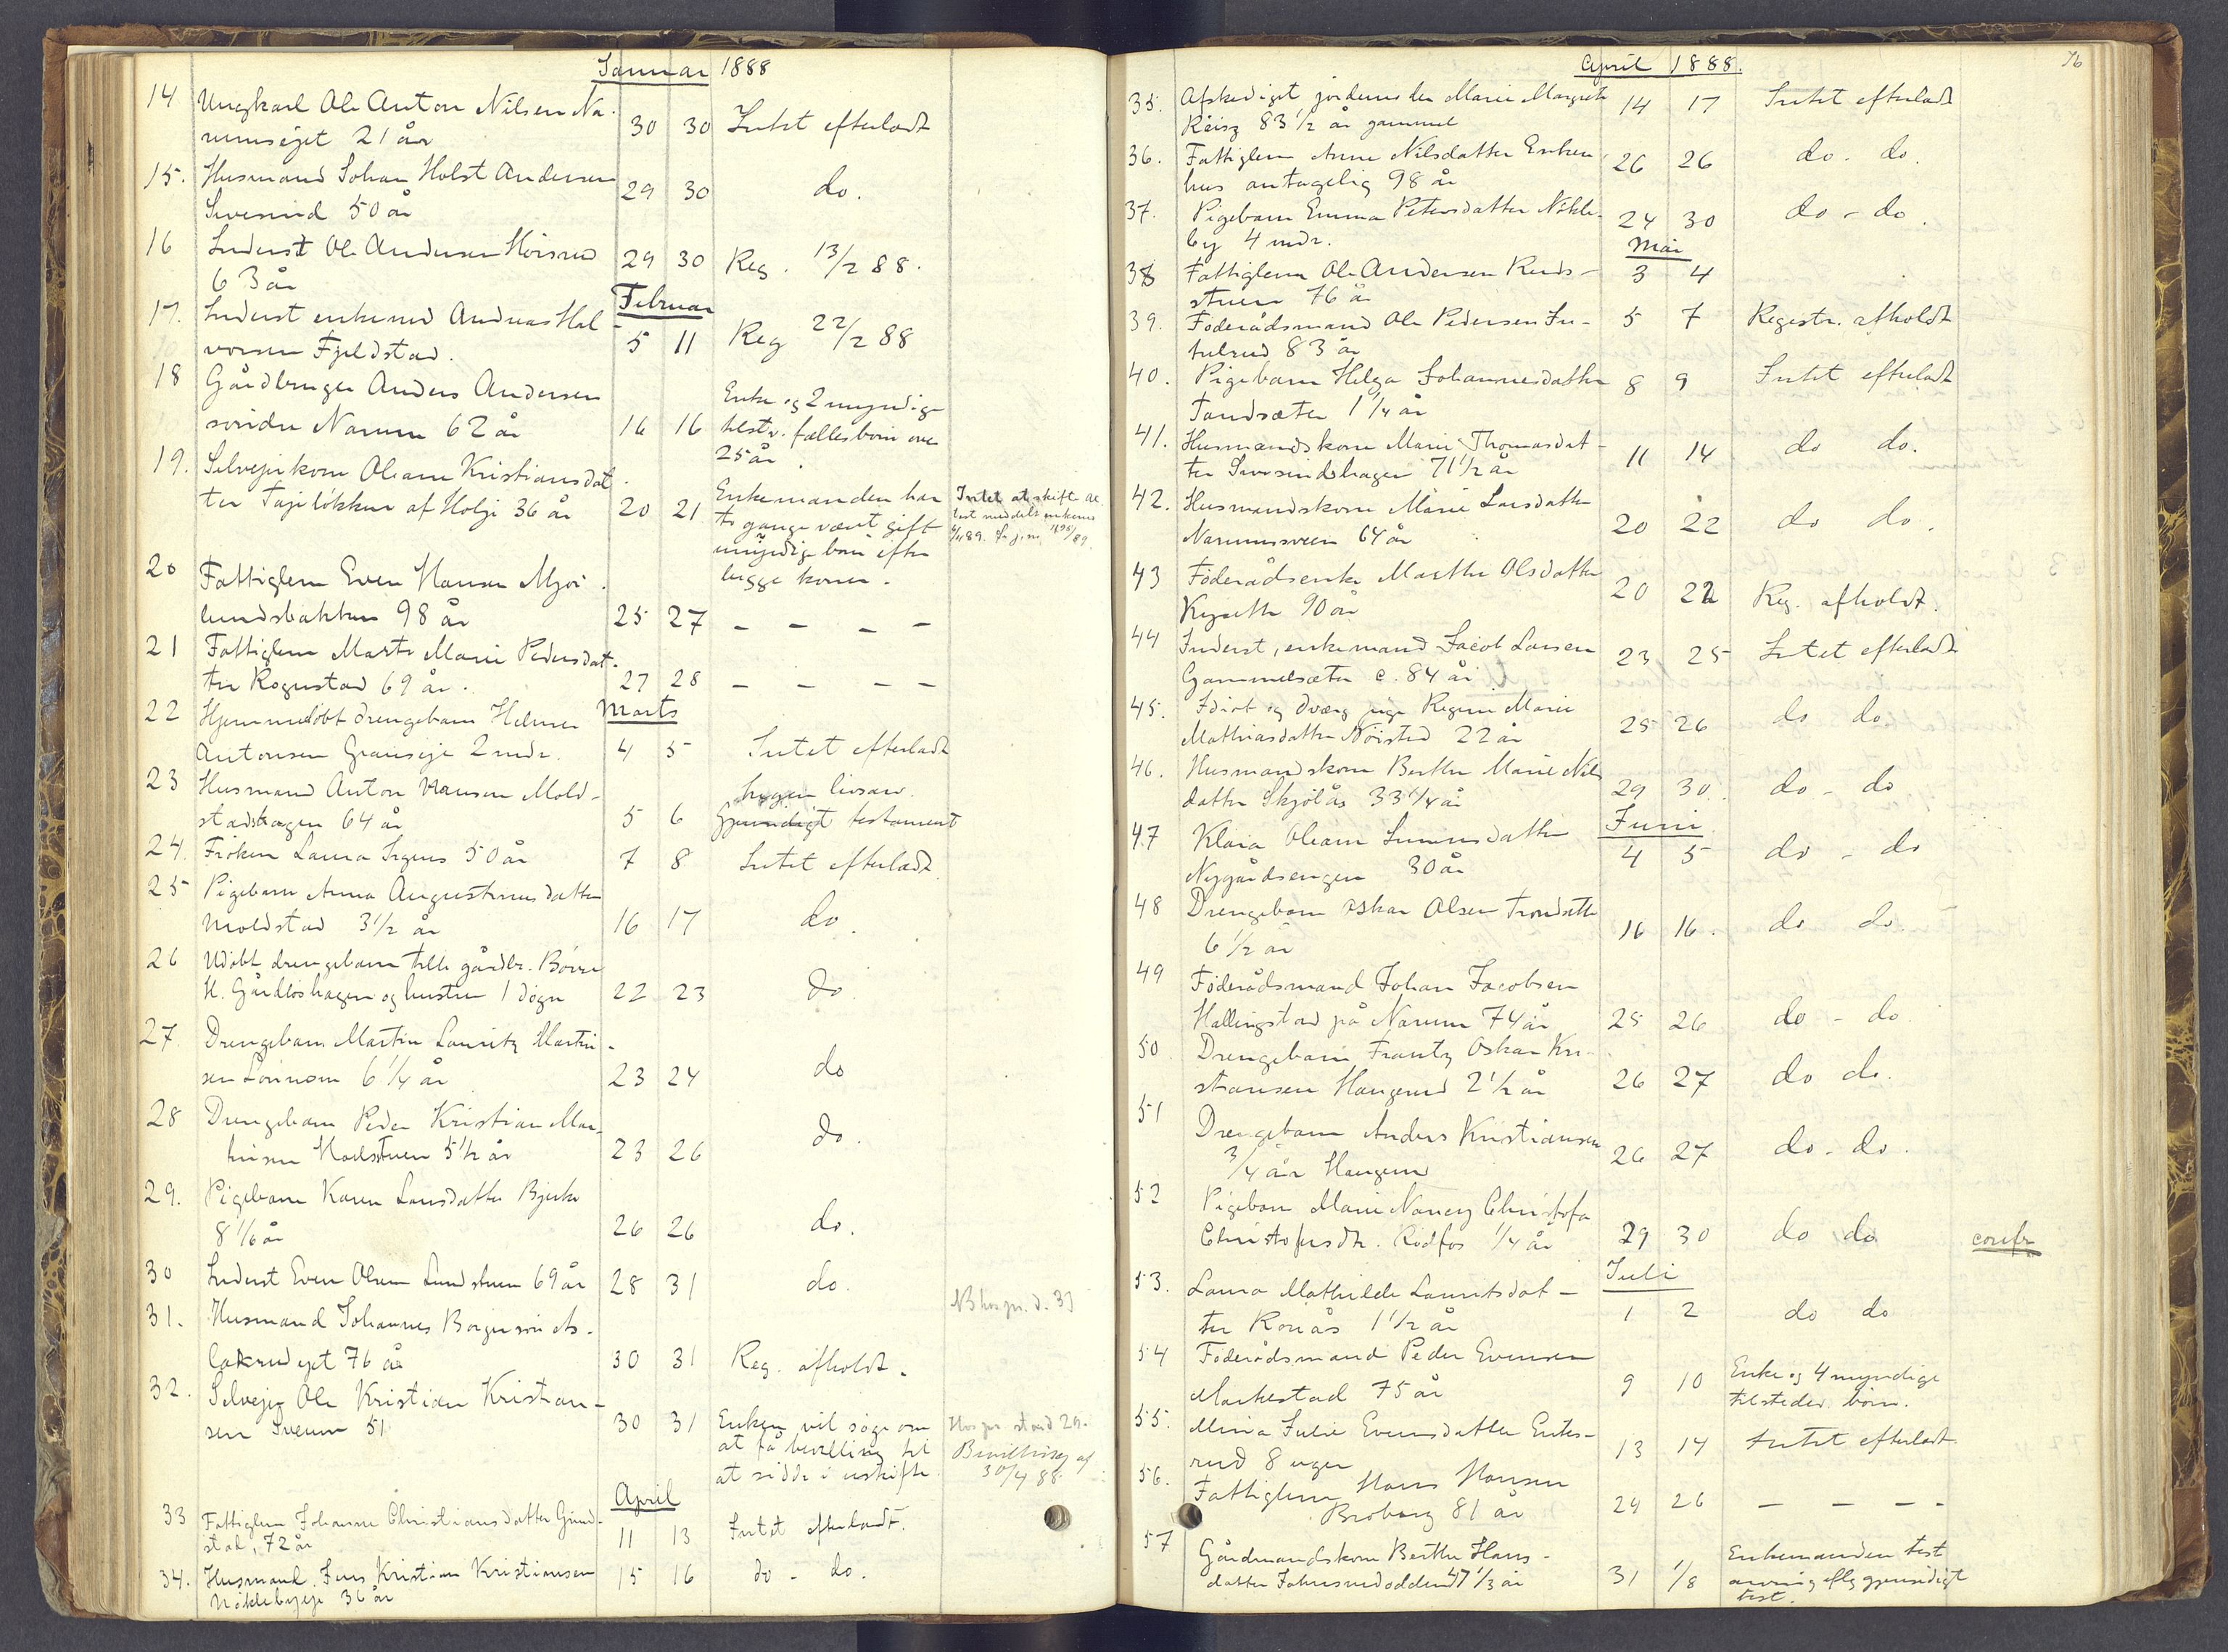 Januar 1888
14 Ungkarl Ole Anton Nilsen Na-
rumsejet 21 år 30 30 Intet efterladt
15. Husmand Johan Holst Andersen
50 år 29 30 do.
16 Inderst Ole Andersen Hörsrud
63 år 29 30 Reg. 13/2 88.
Februar
17. Inderst enkemand Andreas Hal-
vorsen Fjeldstad. 5 11 Reg 22/2 88
18 Gårdbruger Anders Andersen
søndre Narum 62 år 16 16 Enke og 2 myndige
tilstv. fællesbørn over
25 år.
19. Selveierkone Oleane Kristiansdat-
ter Tajeløkken af Holje 36 år 20 21 Enkemanden har
to gange været gift
umyndige børn efter
begge koner.
Intet at skifte
20 Fattiglem Even Hansen Mjør-
lundsbakken 98 år 25 27 – – – –
21 Fattiglem Marte Marie Pedersdat-
ter Rognstad 69 år. 27 28 – – – –
Marts
22 Hjemmedøbt drengebarn Helmer
Antonsen Graneje 2 mdr. 4 5 Intet efterladt
23 Husmand Anton Hansen Mold-
stadshagen 64 år 5 6 Ingen livsarv.
Gjensidigt testament
24. Frøken Laura Irgens 50 år 7 8 Intet efterladt
25 Pigebarn Anna Augustinusdatter
Moldstad 3 1/2 år 16 17 do.
26 Udøbt drengebarn tilh. gårdbr. Börre
H. Gårdløshagen og hustru 1 døgn 22 23 do
27. Drengebarn Martin Lauritz Martin-
sen Lønnom 6 1/4 år 23 24 do
28 Drengebarn Peder Kristian Mar-
tinsen 5 1/2 år 23 26 do.
29. Pigebarn Karen Larsdatter Bjerke
8 1/6 år 26 26 do.
30 Inderst Even Olsen Lundstuen 69 år 28 31 do.
31. Husmand Johannes Borgersen As-
lakrudejet 76 år 30 31 Reg. afholdt.
32. Selvejer Ole Kristian Kristian-
sen Sveum 51 30 31 Enken vil søge om
at få bevilling til
at sidde i uskifte.
Bevilling af
30/4 88.
April
33 Fattiglem Johanne Christiansdatter Grind-
stad, 72 år 11 13 Intet efterladt.
34. Husmand Jens Kristian Kristiansen
Nøklebyeje 36 år 15 16 do - do.
April 1888. 76
35. Afskediget jordemoder Marie Margrete
Reisz 83 1/2 år gammel 14 17 Intet efterladt
36. Fattiglem Anne Nilsdatter Enken-
hus antagelig 98 år 26 26 do. do.
37. Pigebarn Emma Petersdatter Nøkle-
by 4 mdr. 24 30 do - do.
Mai
38 Fattiglem Ole Andersen Ruds-
stuen 76 år 3 4
39. Föderådsmand Ole Pedersen In-
tulrud 83 år 5 7 Registr. afholdt
40. Pigebarn Helga Johannesdatter
Tandsæter 1 1/4 år 8 9 Intet efterladt
41. Husmandskone Marie Thomasdat-
ter 71 1/2 år 11 14 do do.
42. Husmandskone Marie Larsdatter
Narumsveen 64 år 20 22 do do.
43 Föderådsenke Marthe Olsdatter
90 år 20 22 Reg. afholdt.
44 Inderst, enkemand Jacob Larsen
Gammelsæter c. 84 år 23 25 Intet efterladt
45. Idiot og dværg pige Regine Marie
Mathiasdatter Nöisted 22 år 25 26 do do
46. Husmandskone Berthe Marie Nils-
datter Skjølås 33 1/4 år 29 30. do - do
Juni
47 Klara Oleane Simensdatter
Nygårdsengen 30 år 4 5 do - do
48 Drengebarn Oskar Olsen Trondsæter
6 1/2 år 16 16. do do.
49 Föderådsmand Johan Jacobsen
Hallingstad på Narum 74 år 25 26 do - do
50 Drengebarn Frantz Oskar Kri-
stiansen Haugerud 2 1/2 år 26 27 do do.
51 Drengebarn Anders Kristiansen
3/4 år Haugerud 26 27 do - do.
52 Pigebarn Marie Nancy Christofa
Christofersdtr. Rødfos 1/4 år 29 30 do do confr
Juli
53. Laura Mathilde Lauritsdat-
ter Ronås 1 1/2 år 1 2 do do
54 Föderådsmand Peder Evensen
Markestad 75 år 9 10 Enke og 4 myndige
tilstedev. børn.
55. Mina Julie Evensdatter Enkes-
rud 8 uger 13 14 Intet efterladt
56. Fattiglem Hans Hansen
Broberg 81 år 24 26 – – – –
57 Gårdmandskone Berthe Hans-
datter Johnsrudodden 47 1/3 år 31 1/8 Enkemanden test
arving eflg gjensidigt
test.